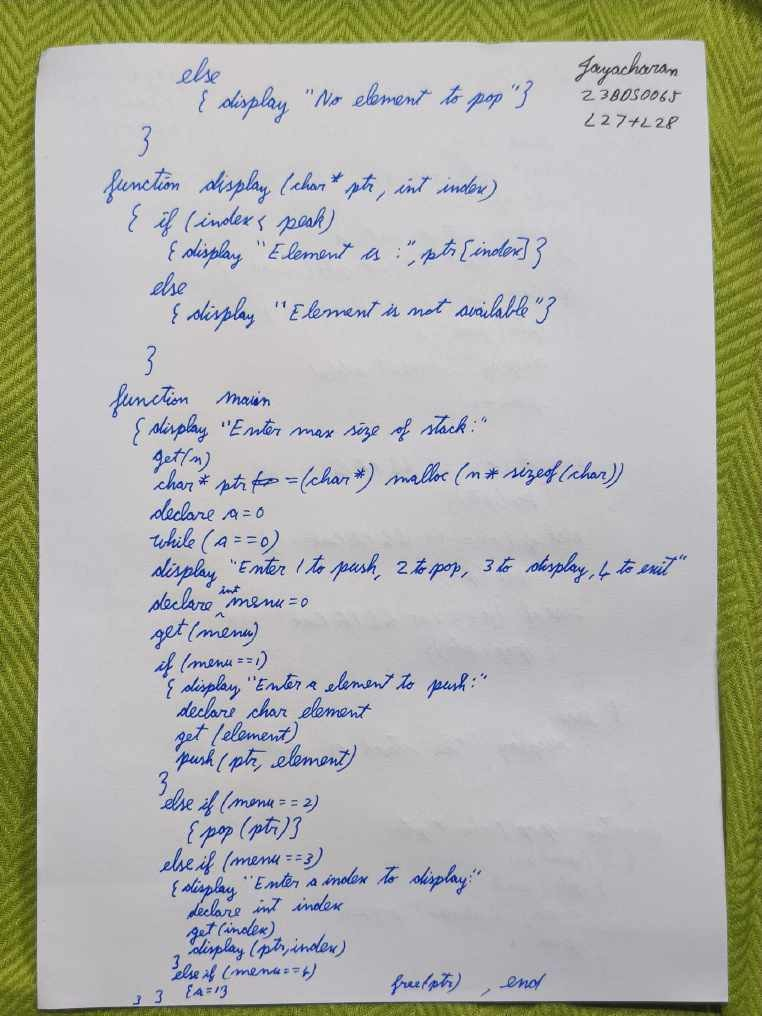 else
{ display "No element to pop"}
}
Jayacharan
23BDS0065
L27+L28
function display (char* ptr, int index)
{ if (index < peak)
{ display "Element is :", ptr[index]}
else
{ display "Element is not available"}
}
function main
{ display "Enter max size of stack:"
get(n)
char* ptr = (char*) malloc (n* sizeof(char))
declare a=0
while (a==0)
display "Enter 1 to push, 2 to pop, 3 to display, 4 to exit"
declare int menu=0
get (menu)
if (menu==1)
{ display "Enter a element to push:"
declare char element
get (element)
push (ptr, element)
}
else if (menu==2)
{ pop (ptr)}
else if (menu==3)
{ display "Enter a index to display:"
declare int index
get (index)
} display (ptr, index)
else if (menu==4)
} } {a=1} free(ptr) , end